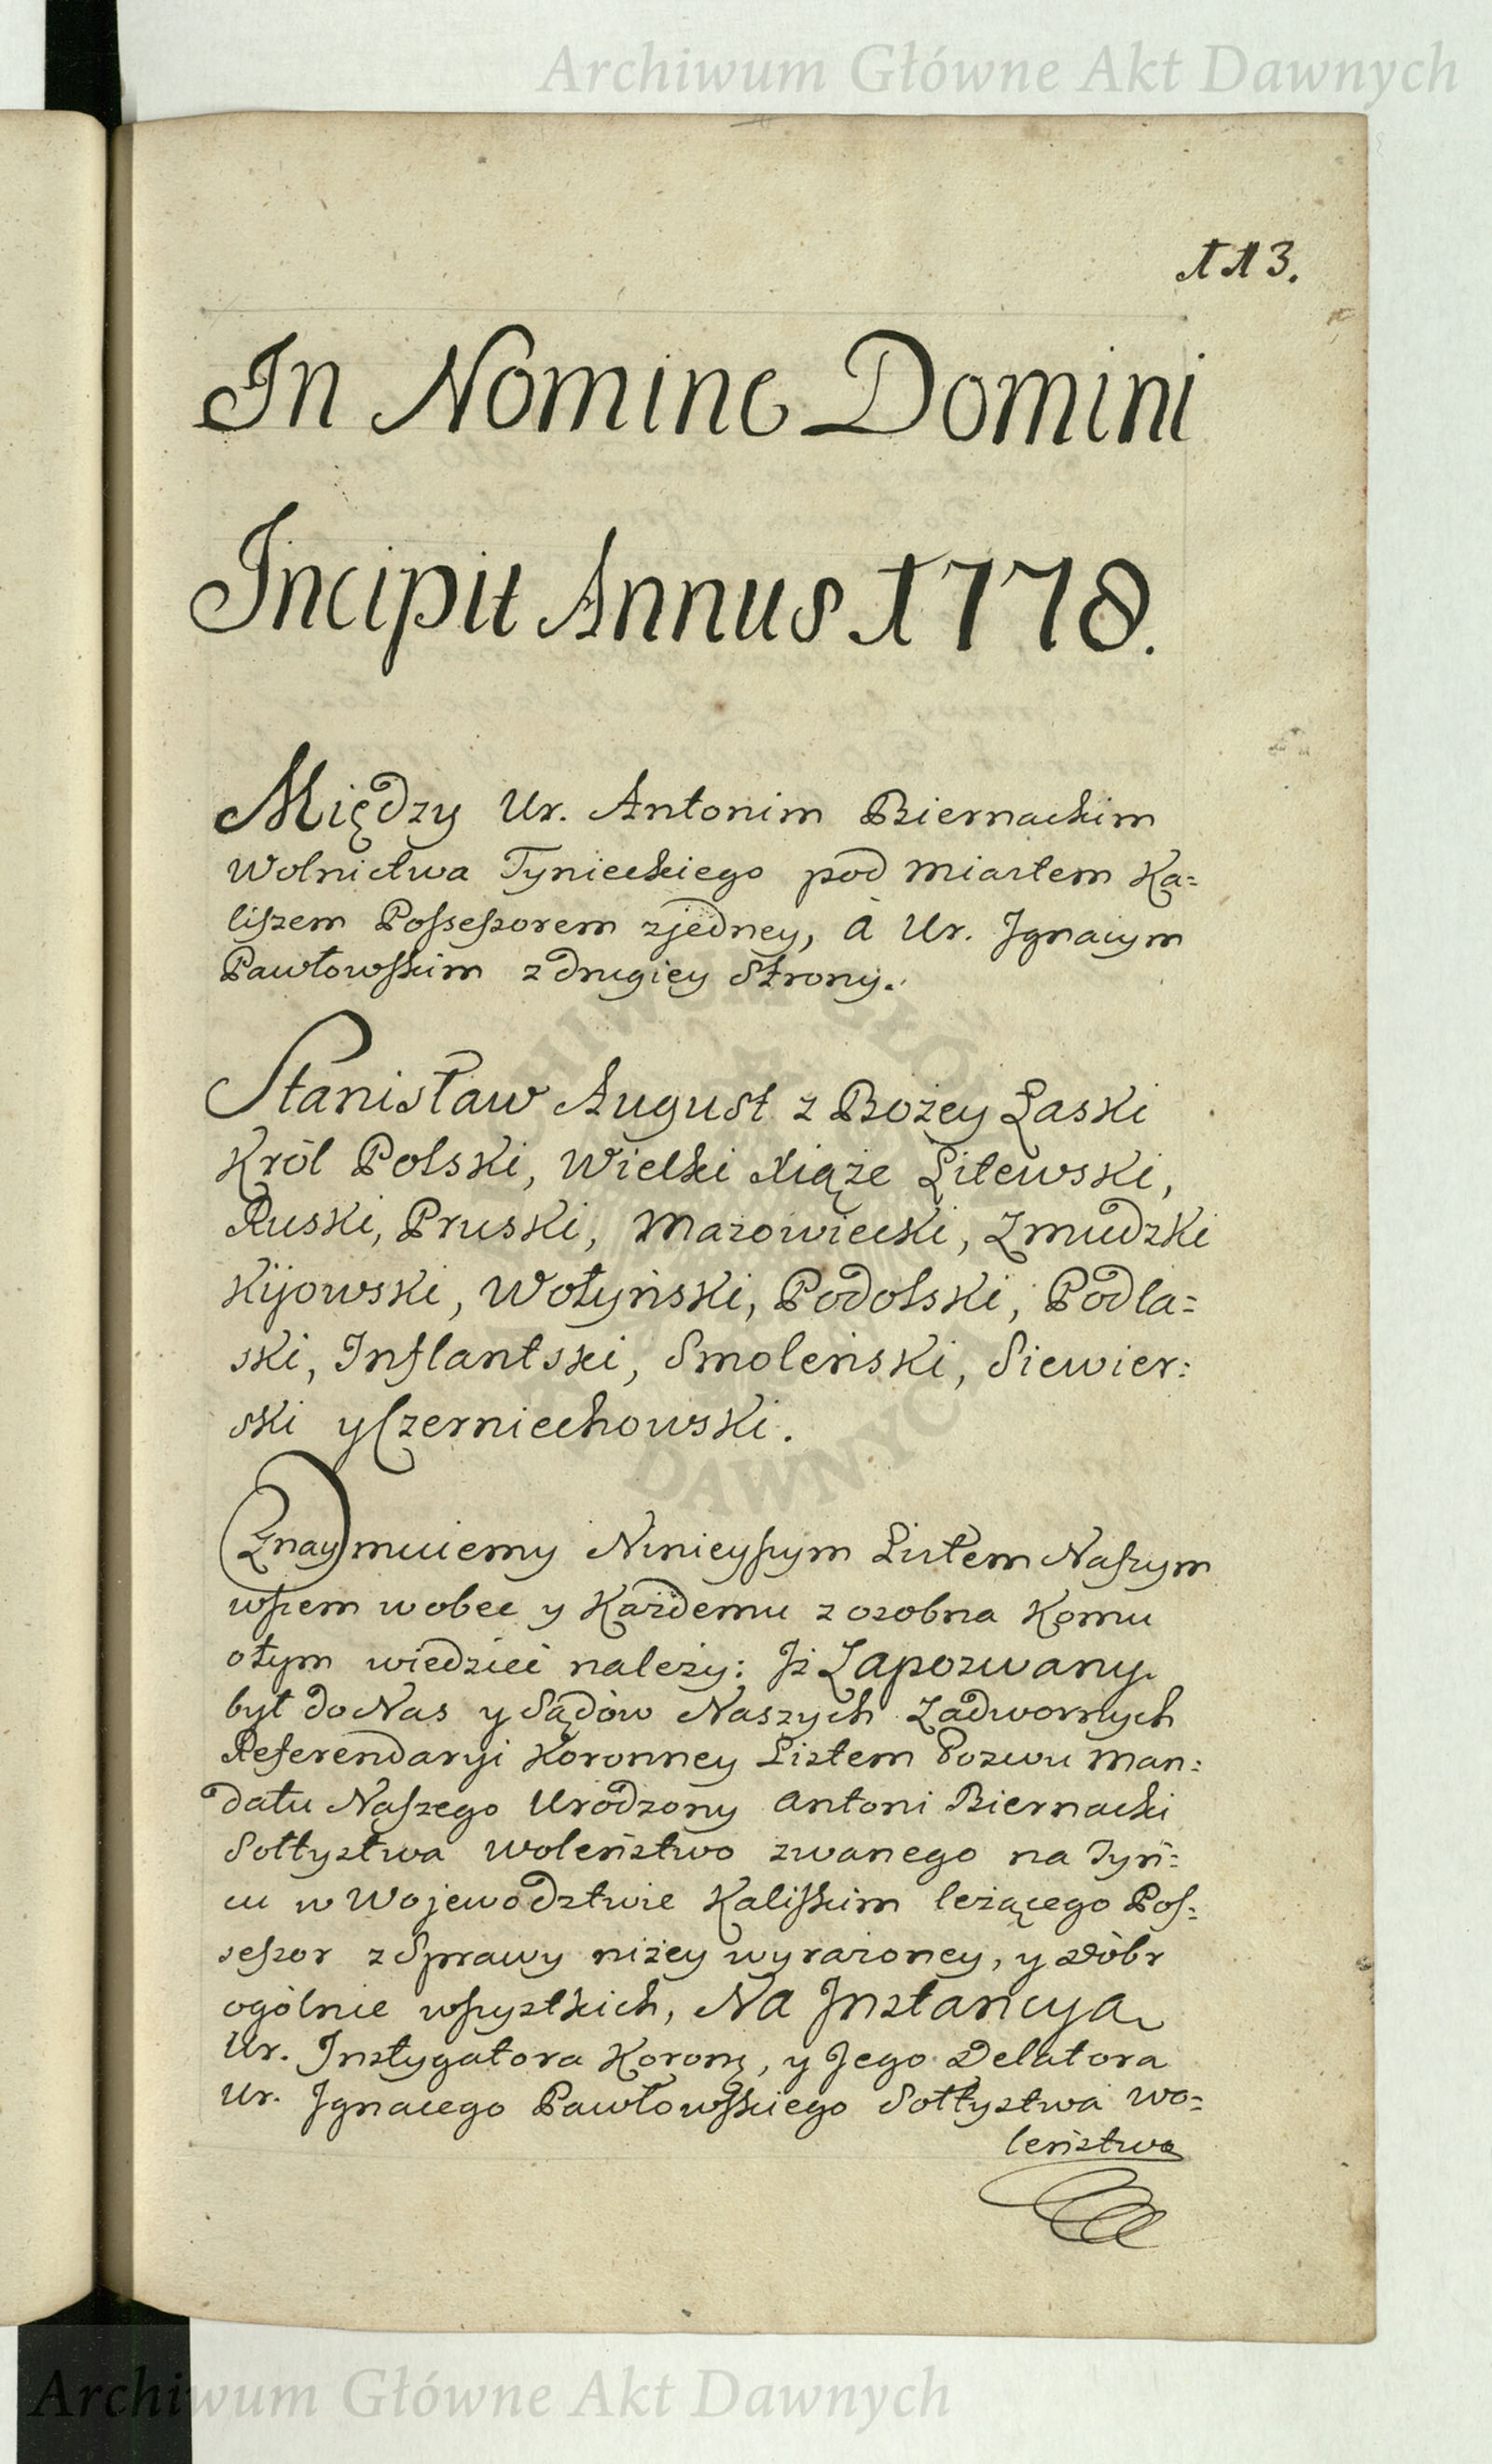 Archiwum Główne Akt Dawnych
113.
In Nomine Domini
Incipit Annus 1778.
Między Ur. Antonim Biernackim
Wolnictwa Tynieckiego pod Miastem Ka=
liszem Possessorem zjedney, à Ur. Jgnacym
Pawłowskim z drugiey Strony.
Stanisław August z Bożey Łaski
Król Polski, Wielki Xiąże Litewski,
Ruski, Pruski, Mazowiecki, Zmudzki
Kijowski, Wołyński, Podolski, Podla=
ski, Inflantski, Smoleński, Siewier=
ski y Czerniechowski.
Znaymuiemy Ninieyszym Listem Naszym
wszem wobec y Każdemu z osobna Komu
otym wiedzieć należy: Jż Zapozwany
był do Nas y Sądów Naszych Zadwornych
Referendaryi Koronney Listem Pozwu Man=
datu Naszego Urodzony Antoni Biernacki
Sołtystwa woleństwo zwanego na Tyń=
cu w Wojewodztwie Kaliskim leżącego Pos=
sessor z Sprawy niżey wyrażoney, y Dóbr
ogólnie wszystkich, Na Jnstancya
Ur. Jnstygatora Koronn, y Jego Delatora
Ur. Jgnacego Pawłowskiego Sołtystwa Wo=
leństwa
ARCHIWUM GŁÓWNE AKT DAWNYCH
Archiwum Główne Akt Dawnych